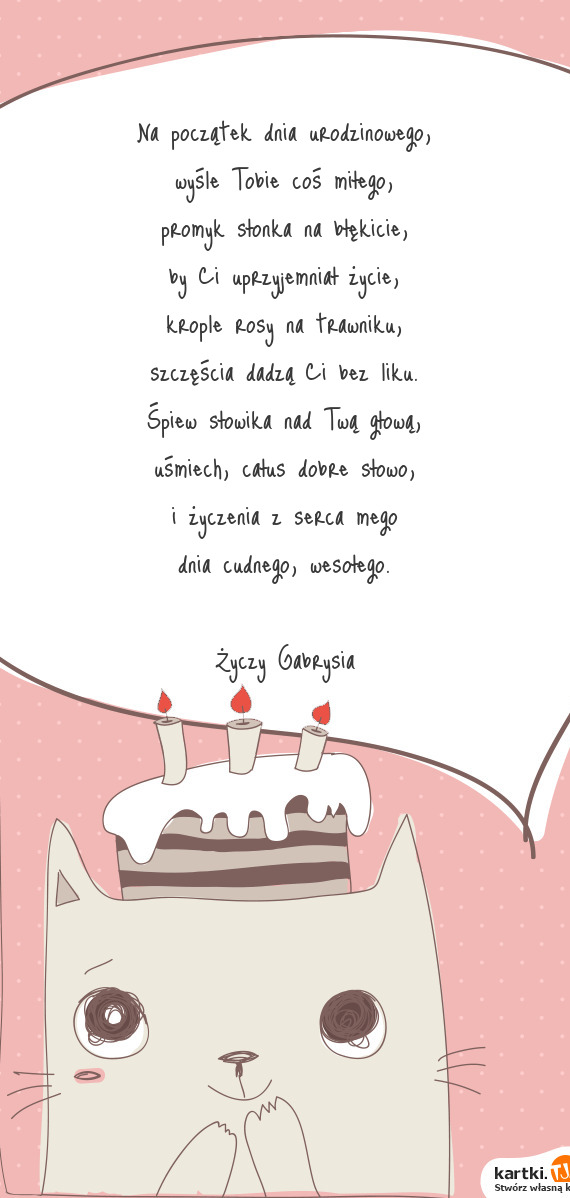 Na początek dnia urodzinowego,
wyśle Tobie coś miłego,
promyk słonka na błękicie,
by Ci uprzyjemniał życie,
krople rosy na trawniku,
szczęścia dadzą Ci bez liku.
Śpiew słowika nad Twą głową,
uśmiech, całus dobre słowo,
i życzenia z serca mego
dnia cudnego, wesołego.
Życzy Gabrysia
kartki.TJ
Stwórz własną k